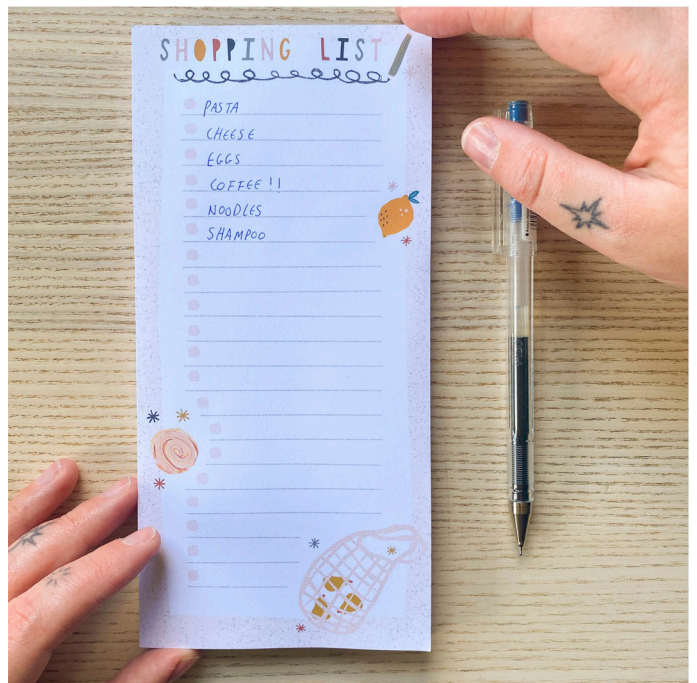 SHOPPING LIST
PASTA
CHEESE
EGGS
COFFEE!!
NOODLES
SHAMPOO